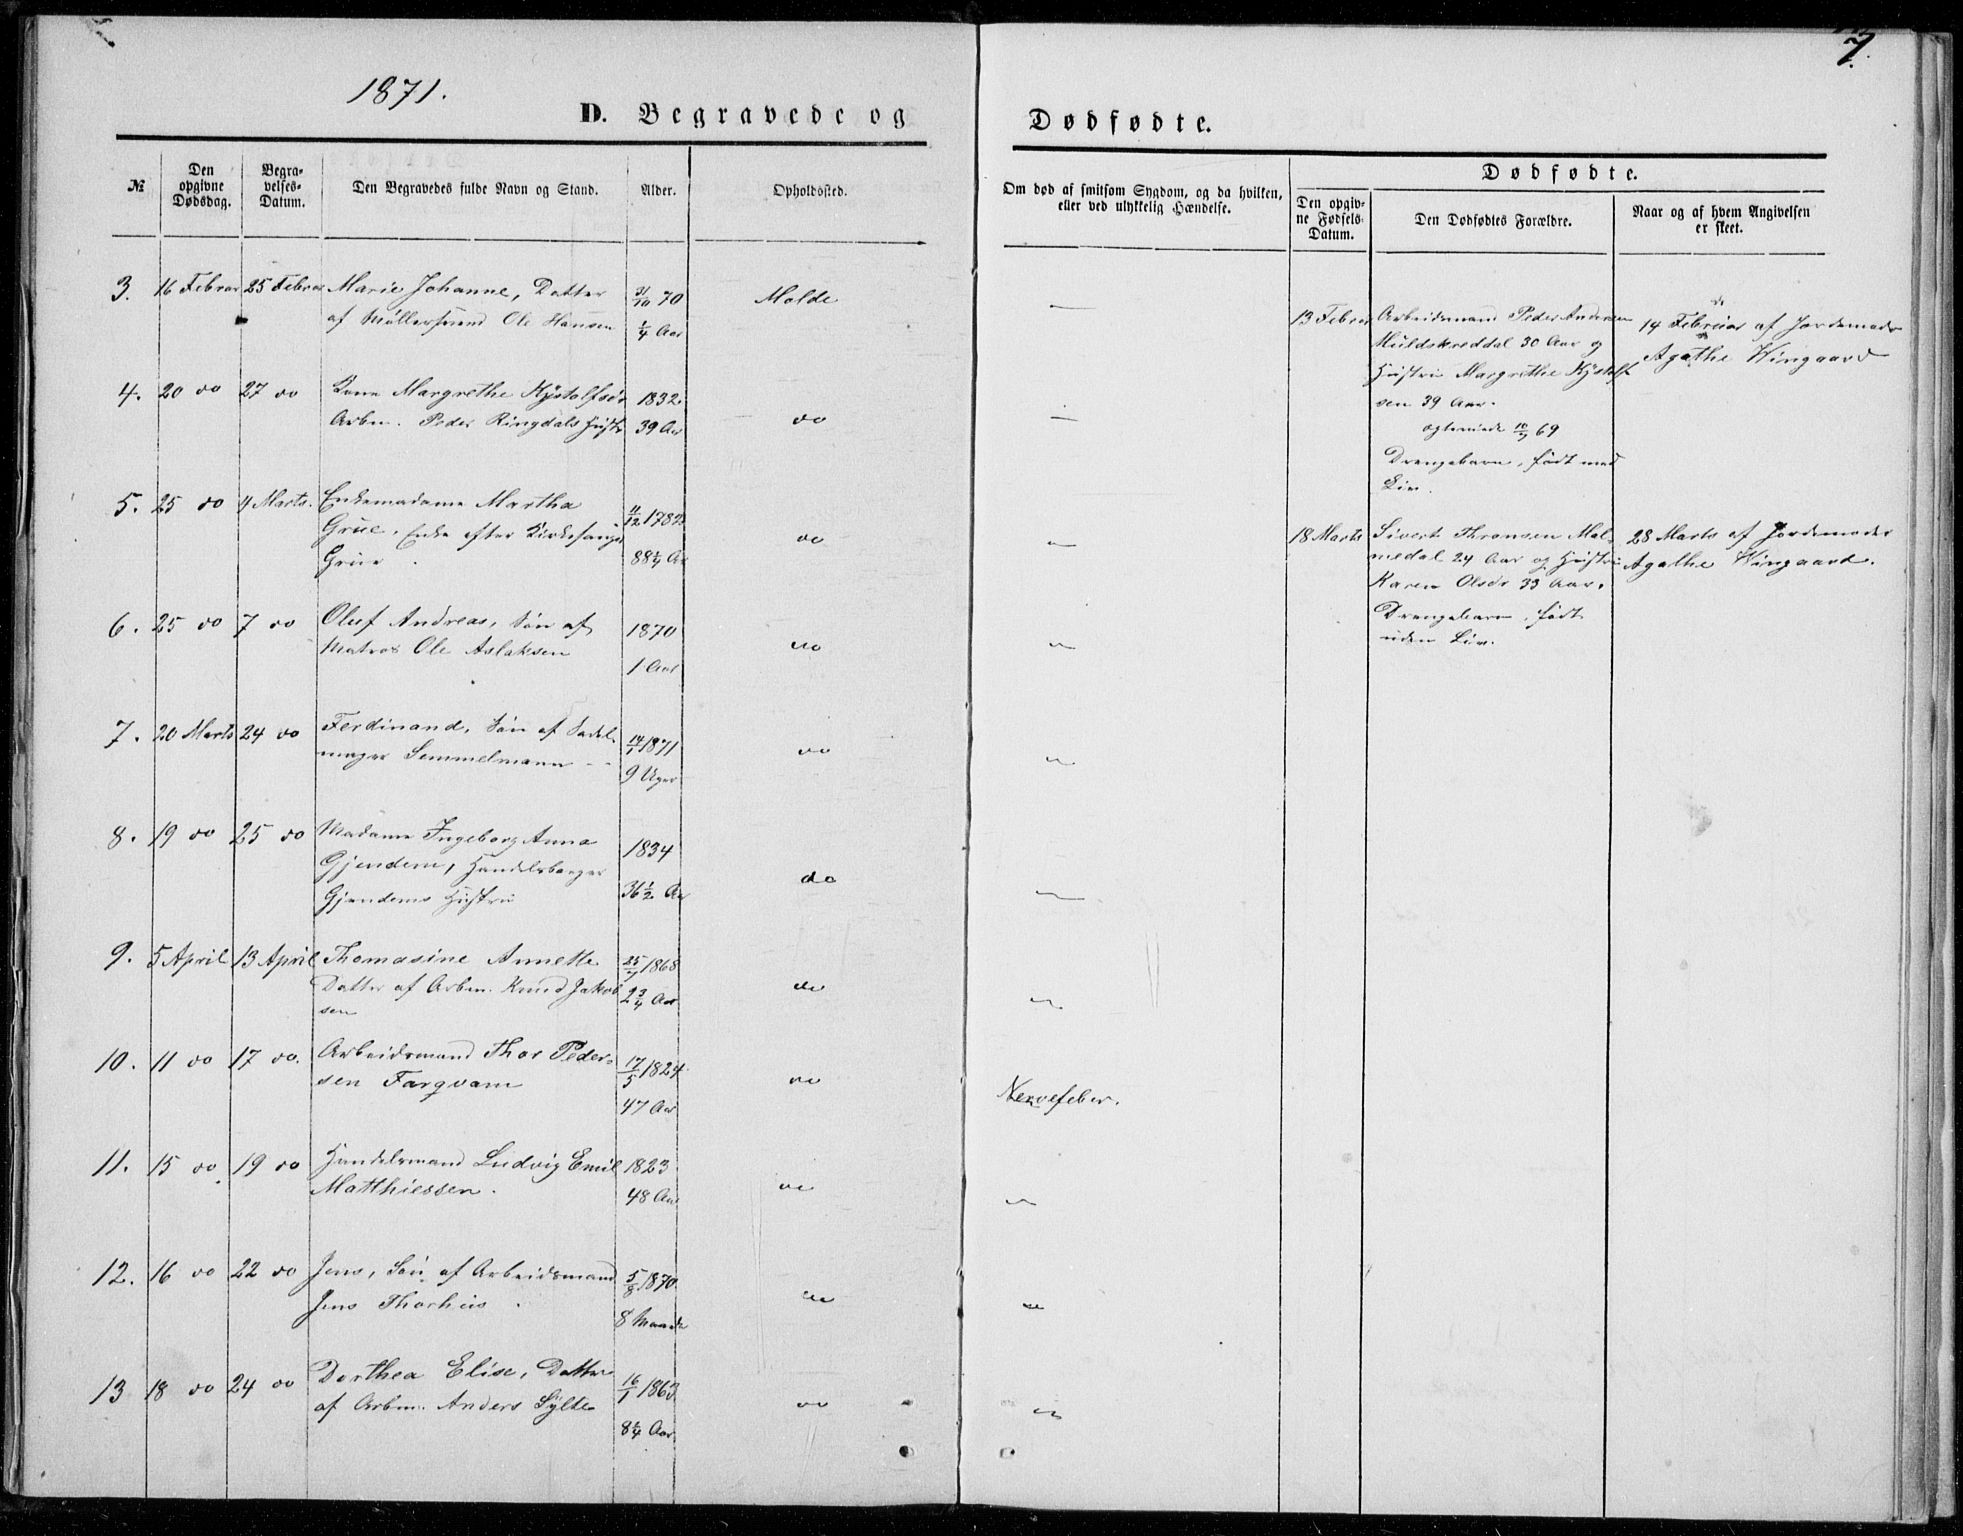 1871.
D. Begravede og
Dødfødte.
7.
№
Den opgivne Dødsdag.
Begravelses-Datum.
Den Begravedes fulde Navn og Stand.
Alder.
Opholdssted.
Om død af smitsom Sygdom, og da hvilken,
eller ved ulykkelig Hændelse.
Dødfødte.
Den opgivne Fødsels-Datum.
Den Dødfødtes Forældre.
Naar og af hvem Angivelsen
er skeet.
3. 16 Februar 25 Februar Marie Johanne, Datter 31/10 70 Molde —
af Møllersvend Ole Hansen 1/4 Aar
4. 20 do 27 do Kone Margrethe Kystolfsdr 1832 do —
Arbm. Peder Ringdals Hustr 39 Aar
5. 25 do 4 Marts. Enkemadame Martha 11/12 1782 do —
Grüe, Enke efter Kirkesanger
Grüe. 88 1/4 Aar
6. 25 do 7 do Oluf Andreas, Søn af 1870 do —
Matros Ole Aslaksen 1 Aar
7. 20 Marts 24 do Ferdinand, Søn af Sadel- 14/1 1871 do —
mager Semmelmann 9 Uger
8. 19 do 25 do Madame Ingeborg Anna 1834 do —
Gjendem, Handelsborger
Gjendems Hustru 36 1/2 Aar
9. 5 April 13 April Thomasine Annette 25/7 1868 do —
Datter af Arbm. Knud Jakob- 2 3/4 Aar
sen
10. 11 do 17 do. Arbeidsmand Thor Peder- 17/5 1824 do Nervefeber.
sen Fargvam 47 Aar
11. 15 do 19 do Handelsmand Ludvig Emil 1823 do —
Matthiessen. 48 Aar
12. 16 do 22 do Jens, Søn af Arbeidsmand 5/8 1870 do —
Jens Thorhus. 8 Maaneder
13 18 do 24 do Dorthea Elise, Datter 16/1 1863 do —
af Arbm. Anders Sylte 8 1/4 Aar
13 Februar Arbeidsmand Peder Andersen 14 Februar af Jordemoder
Muldskreddal 30 Aar og Agathe Wingaard
Hustru Margrethe Kystolf-
sen 39 Aar.
ægteviede 10/7 69
Drengebarn, født med
Liv.
18 Marts Sivert Thronsen Mal- 28 Marts af Jordemoder
medal 24 Aar og Hustru Agathe Wingaard.
Karen Olsdr 33 Aar.
Drengebarn, født
uden Liv.